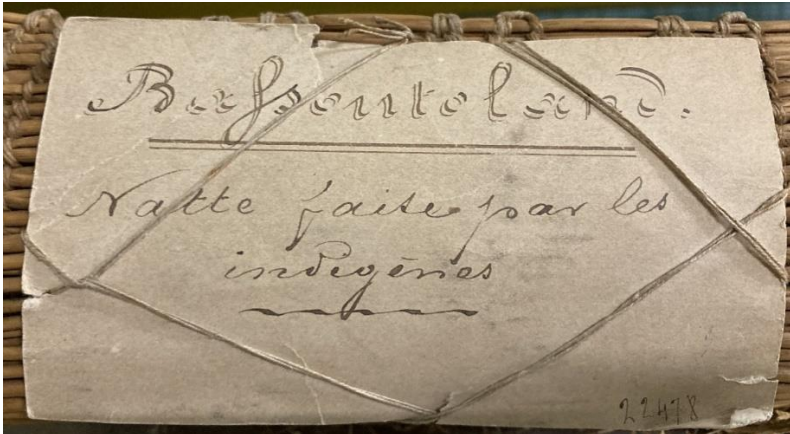 Bassoutoland.
Natte faite par les
indegènes
22478